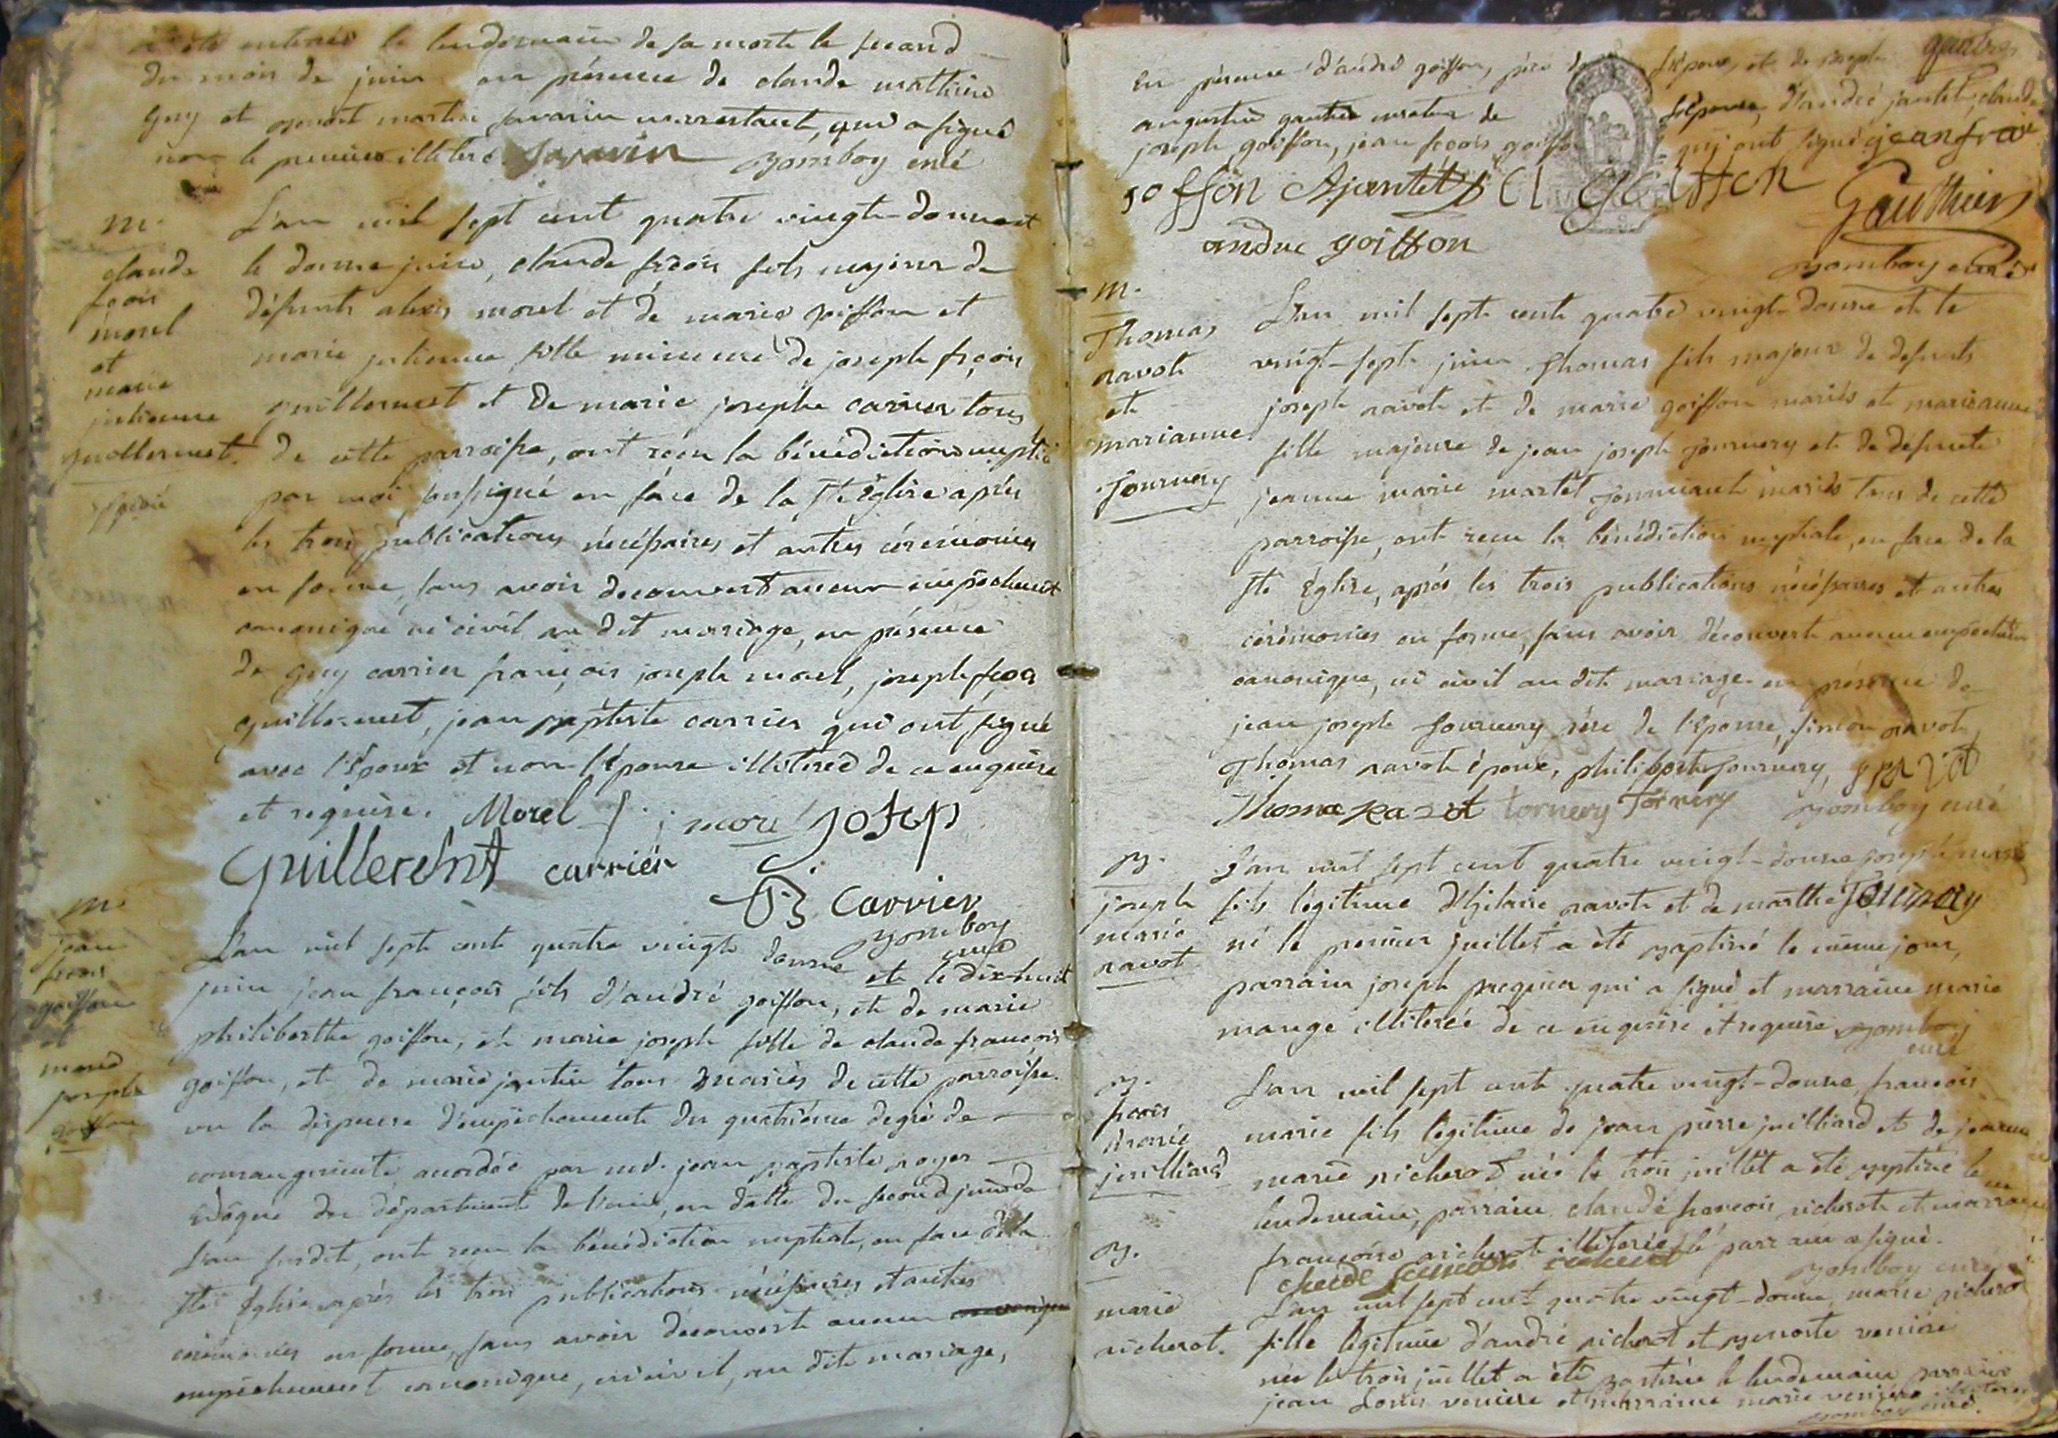 a été enterré le lendemain de sa mort le second
du mois de juin en présence de claude mathieu
guy et benoit martin savarin marrestant, qui a signé
non le premier illiteré Savarin Bomboy curé
m.
claude
fçois
morel
et
marie
julienne
guillermet
L'an mil sept cent quatre vingt-douze et
le douze juin, claude fçois fils majeur de
défunts alexis morel et de marie goiffon et
marie julienne fille mineure de joseph fçois
guillermet et de marie josephe carrier tous
de cette parroisse, ont reçu la bénédiction nuptiale
par moi soussigné en face de la Ste Église après
les trois publications nécéssaires et autres cérémonies
en forme, sans avoir decouvert aucun empêchement
canonique ni civil au dit mariage, en présence
de guy carrier françois joseph morel, joseph fçois
guillermet, jean baptiste carrier qui ont signé
avec l'époux et non l'épouse illiterée de ce enquise
et requise. Morel f j morel josep
Guillermet carrier
JB Carrier
Bomboy
curé
m.
jean
frçois
goiffon
et
marie
josephe
goiffon
L'an mil sept cent quatre vingt douze et le dix-huit
juin jean françois fils d'andré goiffon, et de marie
philiberthe goiffon, et marie joseph fille de claude françois
goiffon, et de marie jantin tous mariés de cette parroisse.
vu la dispense d'empêchement du quatrième degré de
consanguinité accordée par mr. jean baptiste royer
Evêque du département de l'ain, en datte du second juin de
l'an susdit, ont reçu la bénédiction nuptiale, en face de la
Ste Église après les trois publications nécéssaires et autres
cérémonies en forme, sans avoir découvert aucun canonique
empêchement canonique, ni civil, au dit mariage,
En présence d'andré goiffon, père de l'époux, et de joseph gauthier
augustin gauthier curateur de l'épouse, d'andré jantet, claude
joseph goiffon, jean fçois goiffon qui ont signé jean frai
goffon Ajantet Cl goiffon
Gauthier
andre goiffon
Bomboy curé
m.
Thomas
ravot
et
marianne
Fournery
L'an mil sept cent quatre vingt-douze et le
vingt-sept juin Thomas fils majeur de défunts
joseph ravot et de marie goiffon mariés et marieanne
fille majeure de jean joseph fournery et de defunte
jeanne marie martet mariés tous de cette
parroisse, ont reçu la bénédiction nuptiale, en face de la
Ste Église, après les trois publications nécéssaires et autres
cérémonies en forme, sans avoir découvert aucun empechement
canonique, ni civil au dit mariage en présence de
jean joseph fournery père de l'épouse, simeon ravot
Thomas ravot époux, philibert fournery, S ravot
Thoma Ravot tornery Fornery Bomboy curé
B.
joseph
marie
ravot
L'an mil sept cent quatre vingt-douze joseph marie
fils légitime d'hilaire ravot et de marthe Fournery
né le premier juillet a été baptisé le même jour,
parrain joseph que a signé et marraine marie
mange illiterée de ce enquise et requise Bomboy
curé
B.
fçois
marie
juilliard
L'an mil sept cent quatre vingt-douze, françois
marie fils légitime de jean pierre juilliard et de jeanne
marie richerot né le trois juillet a été baptisé le
lendemain, parrain claude françois richerot et marraine
françoise richerot illiterée, le parrain a signé.
claude francois richerot Bomboy curé
B.
marie
richerot.
L'an mil sept cent quatre vingt-douze, marie richerot
fille légitime d'andré richerot et benoite veniere
née le trois juillet a été baptisée le lendemain parrain
jean Louis veniere et marraine marie veniere
Bomboy curé.